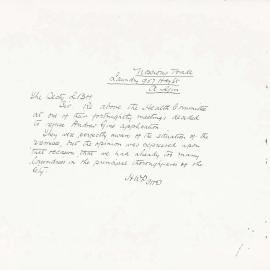 Noxious Trade
Laundry 257 High St
A Gin
The Secty LBH
Sir. Re above the Health Committee
at one of their fortnightly meetings decided
to refuse Andrew Gins application
They are perfectly aware of the situation of the
premises, but the opinion was expressed upon
that occasion that we had already too many
Laundries in the principal thoroughfares of the
City.